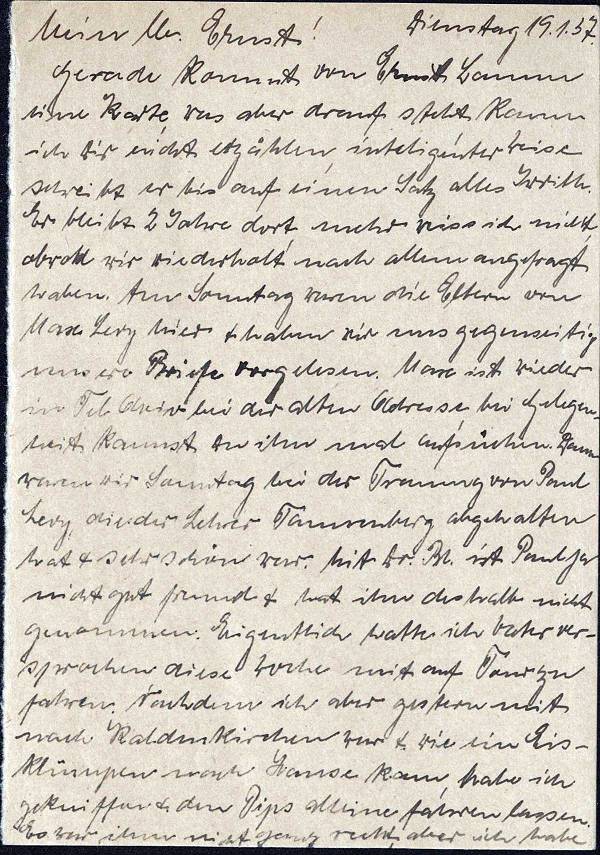 Mein lb. Ernst! Dienstag 19.1.37.
Gerade kommt von Ernst Lamm
eine Karte, was aber drauf steht kann
ich dir nicht erzählen, inteligenter Weise
schreibt er bis auf einen Satz alles Iwrith.
Er bleibt 2 Jahre dort mehr weiss ich nicht,
obwohl wir wiederholt nach allem angefragt
haben. Am Sonntag waren die Eltern von
Max Levy hier & haben wir uns gegenseitig
unsere Briefe vorgelesen. Max ist wieder
in Tel Aviv bei der alten Adresse, bei Gelegen-
heit kannst du ihn mal aufsuchen. Dann
waren wir Sonntag bei der Trauung von Paul
Levy, die der Lehrer Tannenberg abgehalten
hat & sehr schön war. Mit Dr. Bl. ist Paul ja
nicht gut freund & hat ihn deshalb nicht
genommen. Eigentlich hatte ich Vater ver-
sprochen diese Woche mit auf Tour zu
fahren. Nachdem ich aber gestern mit
nach Kaldenkirchen war & wie ein Eis-
klumpen nach Hause kam, habe ich
gekniffen & den Pips alleine fahren lassen.
Es war ihm nicht ganz recht, aber ich habe